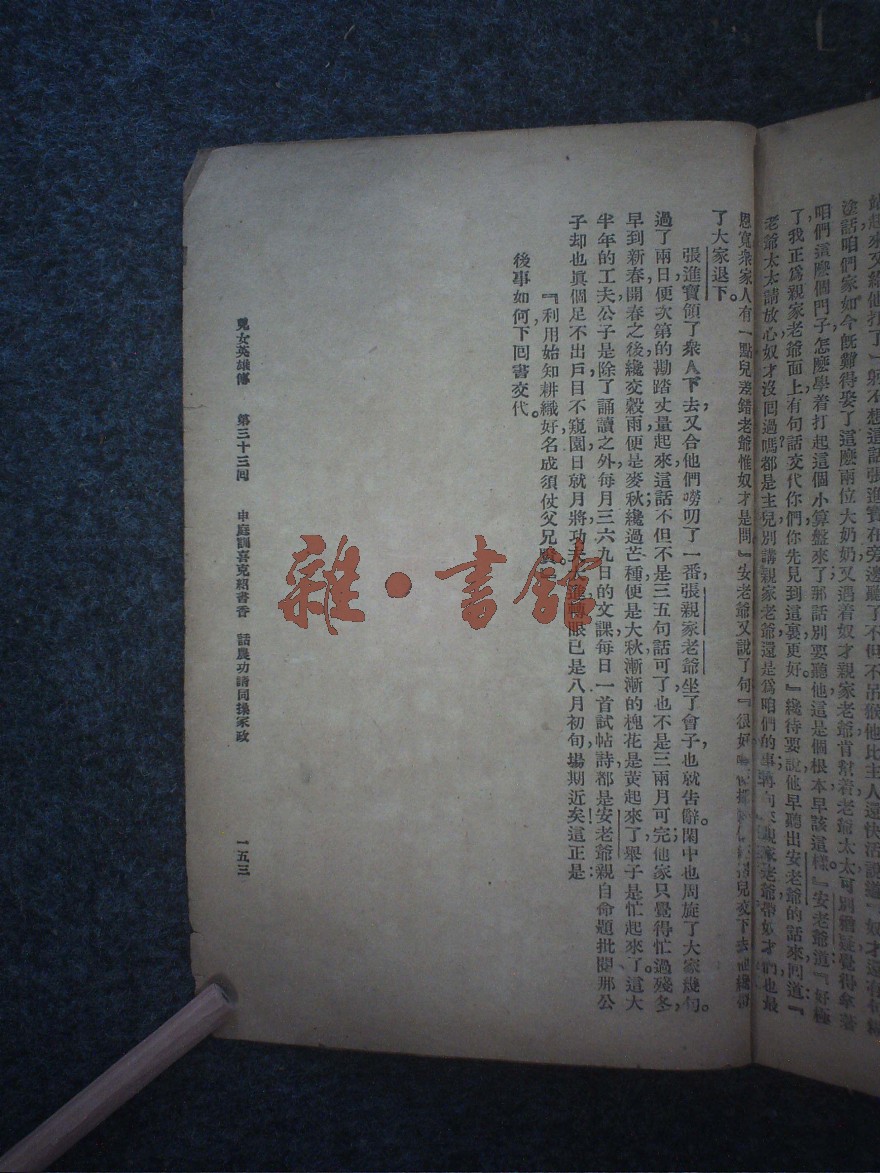 站起來又給他打了一躬不想這話張進寶在旁邊聽了不但不吊猴他比主人還快活說道
途話咱們家如今旣難得娶了這麽兩位大奶奶又遇着奴才親家老爺肯幫着老爺太太可別
咱們這麽個門子怎麽學着打起這個小算盤來了那話別要聽他這是個根本早該這樣。』安老爺道『好極
了我正爲親家老爺面上有句話交代你們你先見到這裏更好。』纔待要說他早聽出安老爺的話來回道『
老爺太太請放心奴才沒囘過嗎都是主兒別講親家老爺還是爲咱們的事
恩寬衆家人有一點兒差錯老爺惟奴才是問』安老爺又說了句『很好
了大家退下。
張進寶領了衆人下去,又合他們嘮叨了一番。張親家老爺坐了會子,也就告辭。閑中也周旋了大家幾句。
過了兩日便次第的勘踏丈量起來;這話不但不是三五句話可了,也不是三兩月可完。他家只覺得忙過殘冬,
早到新春,開春之後,纔交穀雨,便是麥秋;纔過芒種,便是大秋。漸漸的槐花是黃起來了,舉子是忙起來了。這大
半年的工夫,公子是除了誦讀之外,每月三六九日的文課,每日一首試帖詩,都是安老爺親自命題批閱、那公
子却也眞個足不出戶,目不窺園,日就月將,功夫大進。轉眼已是八月初旬,塲期近矣。這正是:
『利用始知耕織好,名成須仗父兄賢。』
後事如何,下囘書交代。
兒女英雄傳 第三十三囘 申庭訓喜克紹書香 話農功請同操家政 一五三
雜·書館